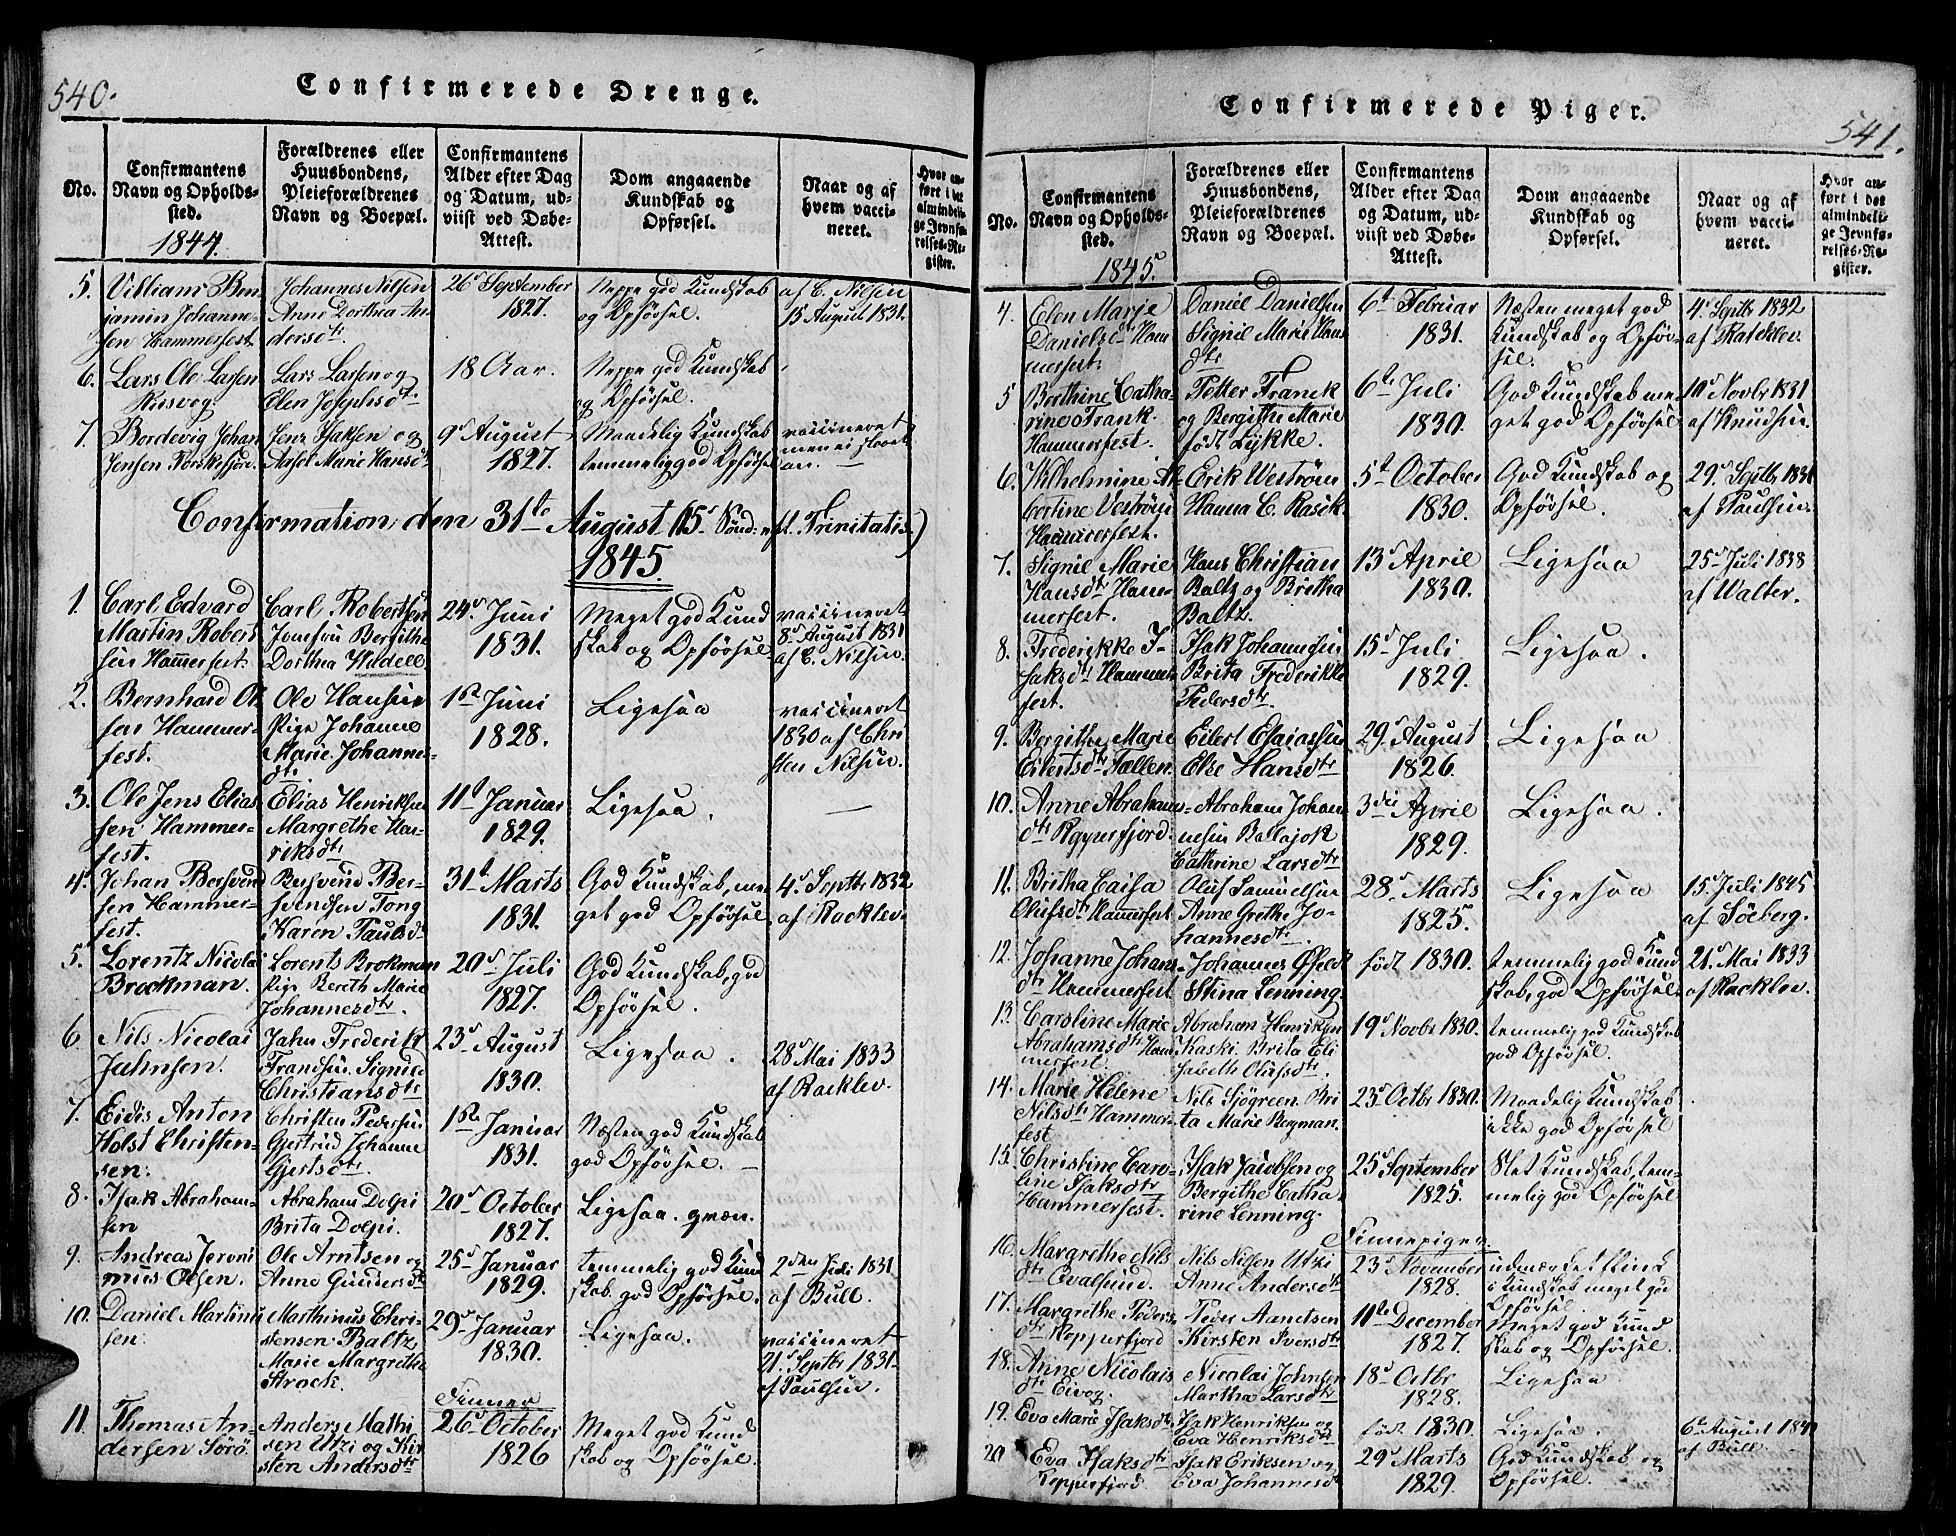 540.
Confirmerede Drenge.
No.
Confirmantens
Navn og Opholds-
sted.
1844.
Forældrenes eller
Huusbondens,
Pleieforældrenes
Navn og Boepæl.
Confirmantens
Alder efter Dag
og Datum, ud-
viist ved Døbe-
Attest.
Dom angaaende
Kundskab og
Opførsel.
Naar og af
hvem vacci-
neret.
Hvor an-
ført i det
almindeli-
ge Jevnfø-
relses-Re-
gister.
5. Villiam Ben
jamin Johann-
sen Hammerfest
Johannes Nilsen
Anne Dorthea An
dersdtr
26d September
1827.
Neppe god Kundskab
og Opførsel.
af C. Nilsen
15 August 1831.
6. Lars Ole Larsen
Lars Larsen og
Elen Josephsdtr
18 Aar.
Neppe god Kundskab
og Opførsel.
7. Bordevig Johan
Jensen Porskefjord
Jens Isaksen og
Marie Hansdtr
9d August
1827.
Maadelig Kundskab
temmelig god Opførsel
vaccineret
men ei
Confirmation den 31te August (15d Sønd: eft. Trinitatis.)
1845.
1. Carl Edvard
Martin Robert
sen Hammerfest
Carl Robertsen
Jomfru Bergithe
Dorthea Wedell
24d Juni
1831.
Meget god Kund
skab og Opførsel
vaccineret
8d August 1831
af C. Nilsen.
2. Bernhard Ol
sen Hammer-
fest.
Ole Hansen
Pige Johanne
Marie Johannes-
dtr
1ste Juni
1828.
Ligesaa
vaccineret
1830 af Chri
sten Nilsen.
3. Ole Jens Elias
sen Hammer-
fest.
Elias Henriksen
Margrethe Hen-
riksdtr
11te Januar
1829.
Ligesaa.
4. Johan Bersvend
sen Hammer-
fest.
Bersvend Ber-
svendsen Tong
Karen Paulsdtr
31te Marts
1831.
God Kundskab, me
get god Opførsel
4d Septbr 1832
af Racklev.
5. Lorentz Nicolai
Brockman.
Lorents Brokman
Pige Bereth Marie
Johannesdtr.
20d Juli
1827.
God Kundskab, god
Opførsel.
6. Nils Nicolai
Jahnsen.
Jahn Frederik
Frandsen. Signild
Christiansdtr
23d August
1830.
Ligesaa.
28d Mai 1833
af Racklev.
7. Eidis Anton
Holst Christen-
sen.
Christen Pedersen
Gjertrud Johanne
Gjertsdtr.
1ste Januar
1831.
Næsten god Kundskab
god Opførsel.
8. Isak Abraham-
sen
Abraham Dolpi
Brita Dolpi.
20d October
1827.
Ligesaa. qvæn.
9. Andreas Jeroni
mus Olsen.
Ole Arntsen og
Anne Gundersdtr
25d Januar
1829.
temmelig god Kund
skab. god Opførsel.
2den Juli 1831
af Bull.
10. Daniel Martinu
sen.
Marthinus Chri-
stensen Baltz
Marie Margrethe
Strock.
29d Januar
1830.
Ligesaa.
vaccineret
21d Septbr 1831
af Paulsen.
Finner
11. Thomas An-
dersen Sörö.
Anders Mathi
sen Utzi og Kir
sten Andersdtr
26d October
1826
Meget god Kund
skab og Opførsel.
Confirmerede Piger.
541.
No.
Confirmantens
Navn og Opholds-
sted.
1845
Forældrenes eller
Huusbondens,
Pleieforældrenes
Navn og Boepæl.
Confirmantens
Alder efter Dag
og Datum, ud-
viist ved Døbe-
Attest.
Dom angaaende
Kundskab og
Opførsel.
Naar og af
hvem vacci-
neret.
Hvor an-
ført i det
almindeli-
ge Jevnfø-
relses-Re-
gister.
4. Elen Marje
Danielsdtr Ham
merfest.
Daniel Danielsen
Signil Marie Hans
dtr
6te Februar
1831.
Næsten meget god
Kundskab og Opfør-
sel.
4d Septbr 1832
af Racklev.
5 Borthine Catha-
rine Frank.
Hammerfest.
Petter Franck
og Bergithe Marie
født Lykke.
6te Juli
1830.
God Kundskab me-
get god Opførsel
10d Novbr 1831
af Knudsen.
6. Wilhelmine Al-
bertine Veström
Hammerfest.
Erik Weström
Hanna C. Rasik
5te October
1830.
God Kundskab og
Opførsel.
29d Septbr 1831
af Paulsen.
7. Signil Marie
Hansdtr Ham-
merfest.
Hans Christian
Baltz og Britha
Baltz.
13d April
1830.
Ligesaa
25d Juli 1838
af Walter.
8. Frederikke I-
saksdtr Hammer
fest.
Isak Johannesen
Brita Frederikke
Pedersdtr
15d Juli
1829.
Ligesaa.
9. Bergithe Marie
Eilertsdtr Fællen.
Eilert Elaiassen
Else Hansdtr
29d August
1826.
Ligesaa
10. Anne Abrahams-
dtr Repperfjord.
Abraham Johan
nesen Ballajok
Cathrine Larsdtr
3die April
1829.
Ligesaa.
11. Britha Caisa
Olufsdtr Hammerfest
Oluf Samuelsen
Anne Grethe Jo-
hannesdtr.
28d Marts
1825.
Ligesaa
15d Juli 1845
af Söeberg.
12. Johanne Johans-
dtr Hammerfest
Johannes
Stina Lenning.
født 1830.
temmelig god Kund
skab, god Opførsel.
21d Mai 1833
af Racklev.
13. Caroline Marie
Abrahamsdtr Ham
merfest.
Abraham Henriksen
Kaski. Brita Eli
sabeth Olufsdtr.
19d Novbr 1830.
temmelig god Kundskab
god Opførsel.
14. Marie Helene
Nilsdtr Hammer-
fest
Nils Sjögreen Bri
ta Marie Bergman.
23d Octbr 1830.
Maadelig Kundskab
ikke god Opførsel
15. Christine Caro-
line Isaksdtr
Hammerfest.
Isak Jacobsen og
Bergithe Catha
rine Lenning.
25d September
1825.
Slet Kundskab, tem-
melig god Opførsel
Finnepiger
16. Margrethe Nils
dtr Qvalsund.
Nils Nilsen Utzi
Anne Andersdtr
23d November
1828.
udmærket flink
i Kundskab meget god
Opførsel.
17. Margrethe Peders
dtr Repperfjord
Peder Amndsen
Kirsten Iversdtr
11te December
1827.
Meget god Kund
skab og Opførsel.
18. Anne Nicolais
dtr Eivog.
Nicolai Johnsen
Martha Larsdtr
18d Octbr
1828.
Ligesaa
19. Eva Marie Isaksdtr
Isak Henriksen og
Eva Henriksdtr
født 1830.
Ligesaa.
6te August 1840
af Bull
20 Eva Isaksdtr
Repperfjord.
Isak Eriksen og
Eva Johannesdtr
29d Marts
1829.
God Kundskab og
Opførsel.